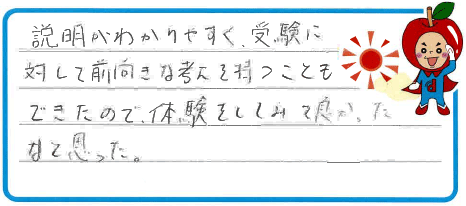 説明がわかりやすく、受験に
対して前向きな考えを持つことも
できたので、体験をしてみて良かった
なと思った。